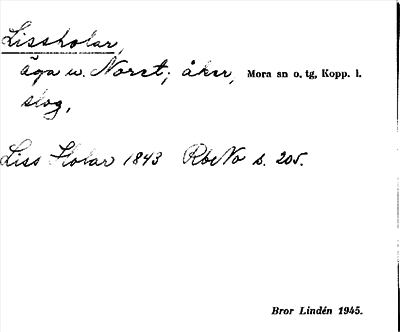 Lissholar,
äga u. Norst; åker, Mora sn o. tg, Kopp. l.
slog,
Liss Holar 1843 RbeNo s. 205.
Bror Lindén 1945.